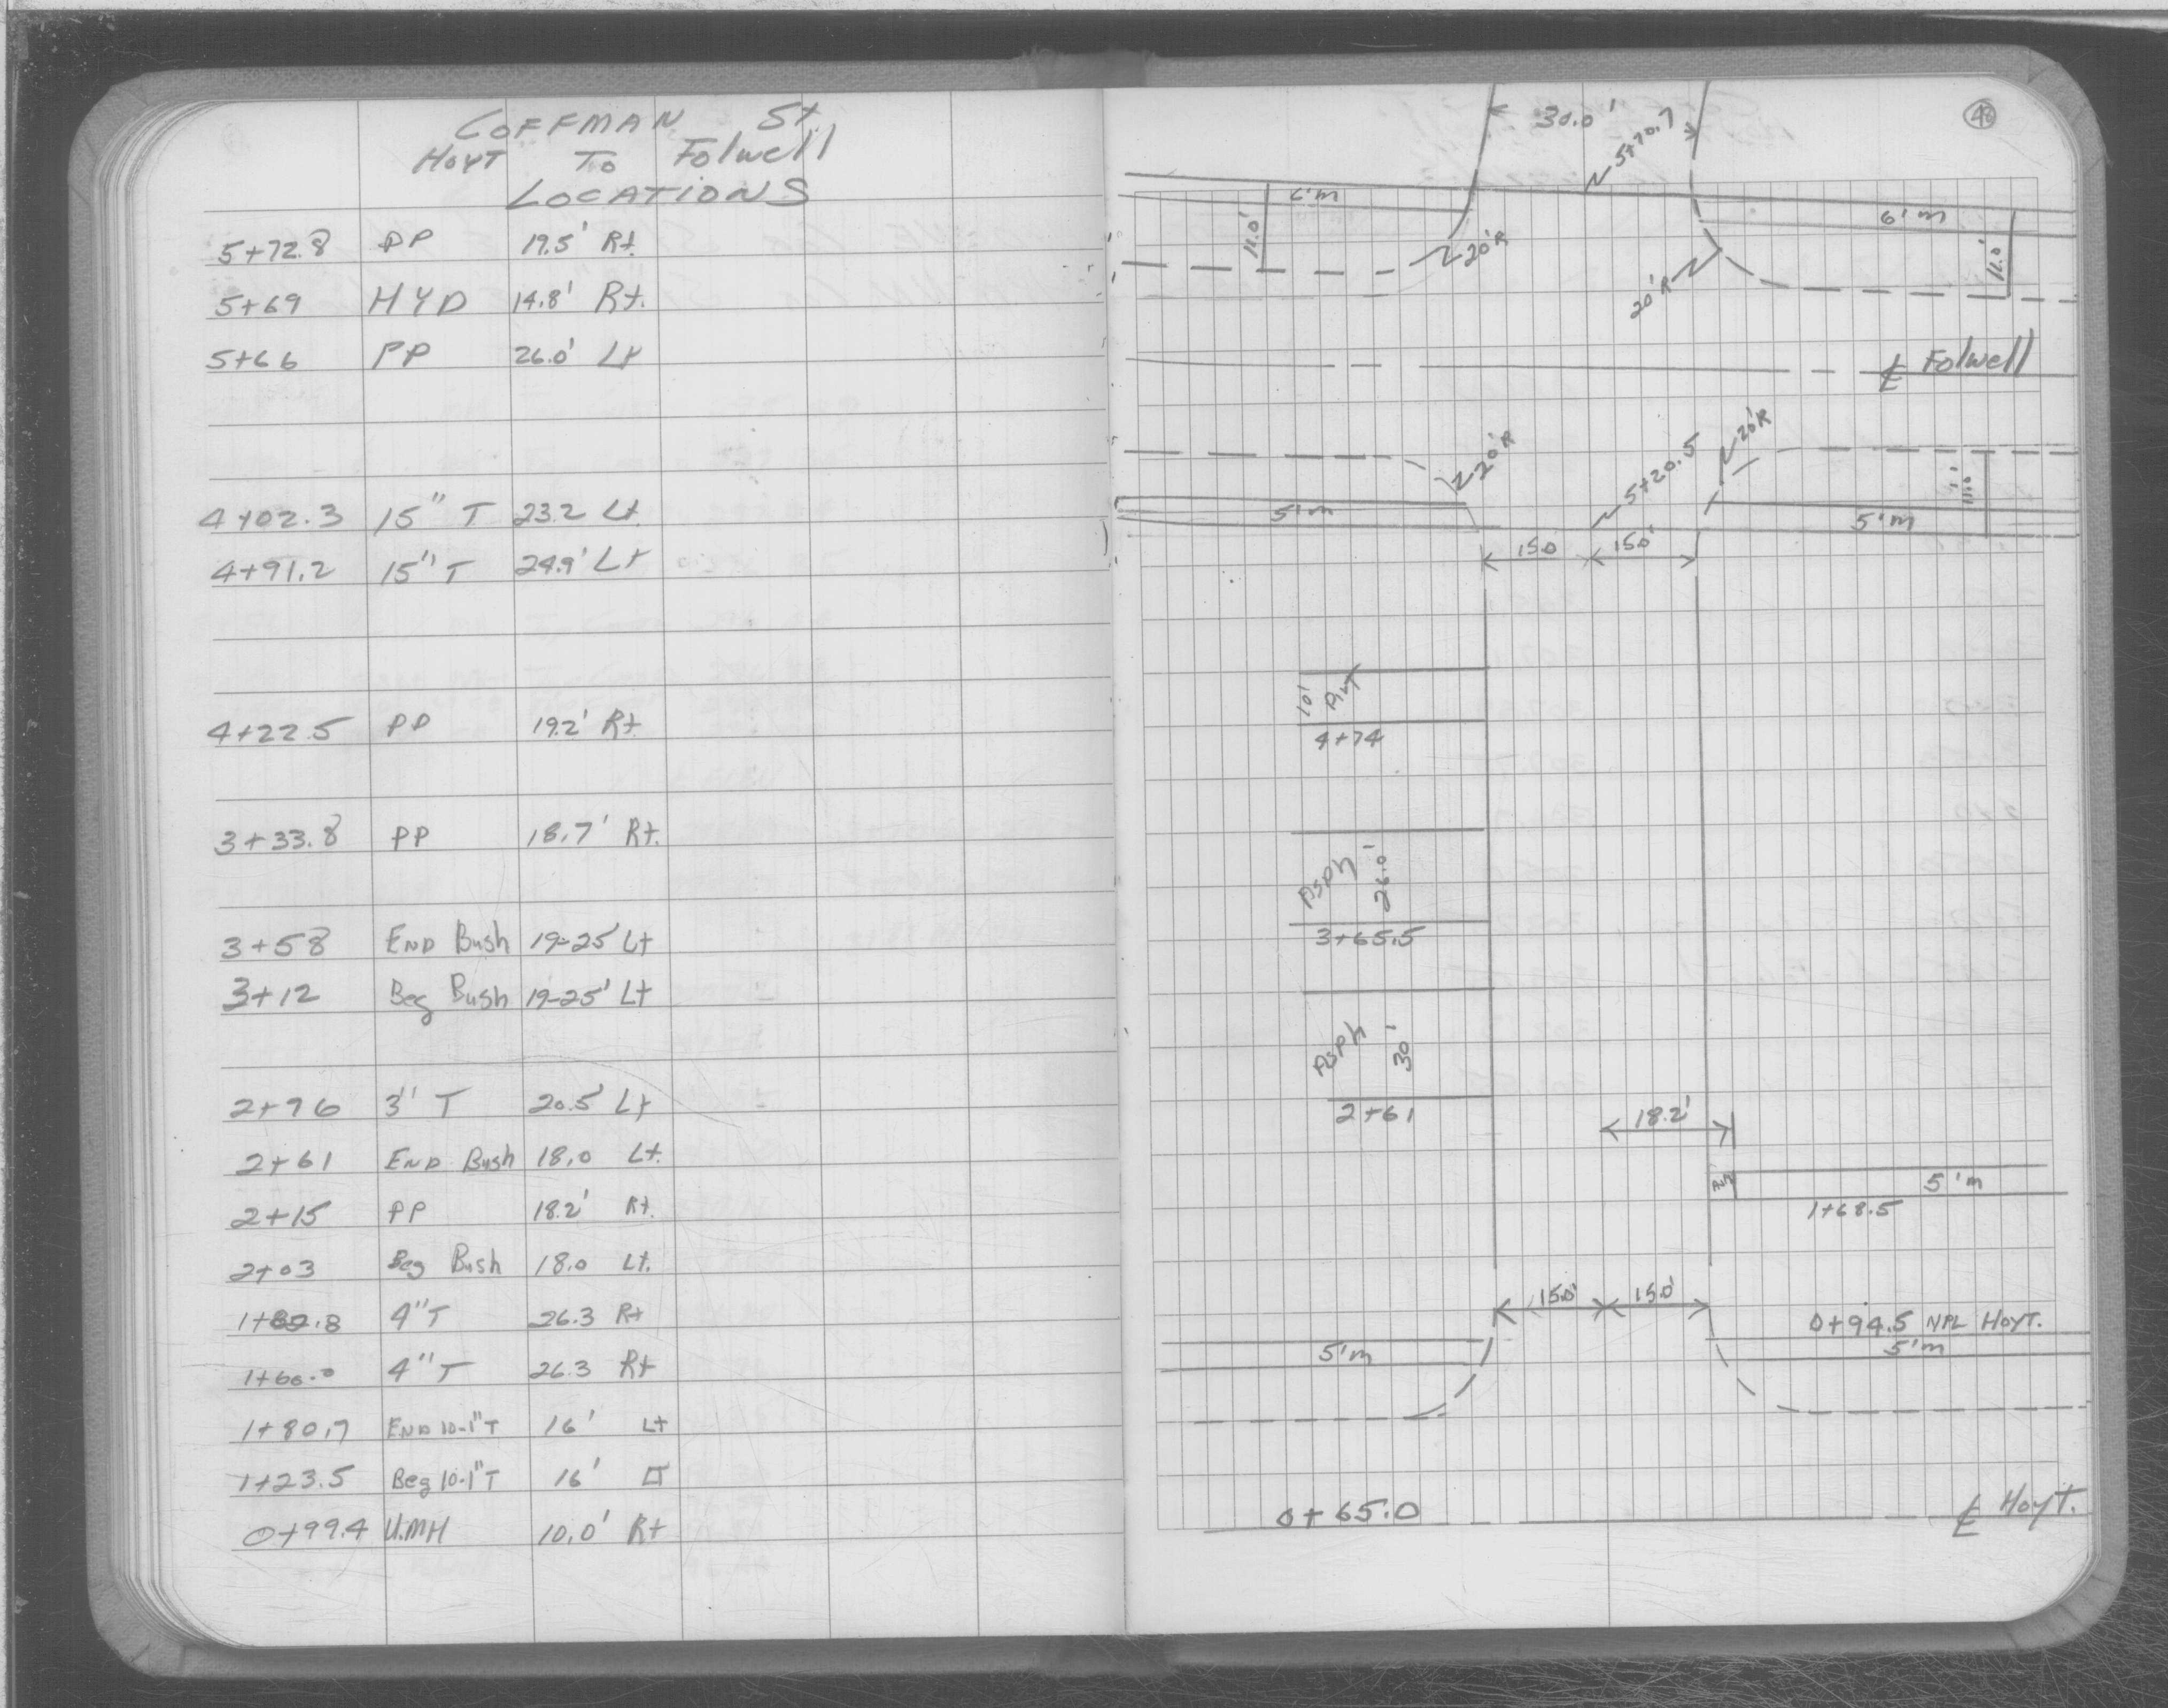 COFFMAN St.
HOYT To Folwell
LOCATIONS
5+72.8 PP 19.5' Rt.
5+69 HYD 14.8' Rt.
5+66 PP 26.0' Lt
4+02.3 15" T 23.2 Lt.
4+91.2 15" T 24.9' Lt
4+22.5 PP 19.2' Rt.
3+33.8 PP 18.7' Rt.
3+58 END Bush 19-25 Lt
3+12 Beg Bush 19-25' Lt
2+96 3" T 20.5' Lt
2+61 END Bush 18.0 Lt.
2+15 PP 18.2' Rt.
2+03 Beg Bush 18.0 Lt.
4" T 26.3 Rt
1+60.0 4" T 26.3 Rt
1+80.7 END 10-1" T 16' Lt
1+23.5 Beg 10-1" T 16' LT
0+99.4 U.MH 10.0' Rt
40
30.0'
5+70.7
6'm
6'm
11.0'
20'R
20'R
11.0'
℄ Folwell
20'R
5+20.5
20'R
11.0'
5'm
5'm
15.0 15.0'
10'
4+74
Asph 26.0'
3+65.5
Asph 30'
2+61
18.2'
5'm
1+68.5
15.0' 15.0'
0+94.5 NPL HOYT.
5'm
5'm
0+65.0
℄ HOYT.